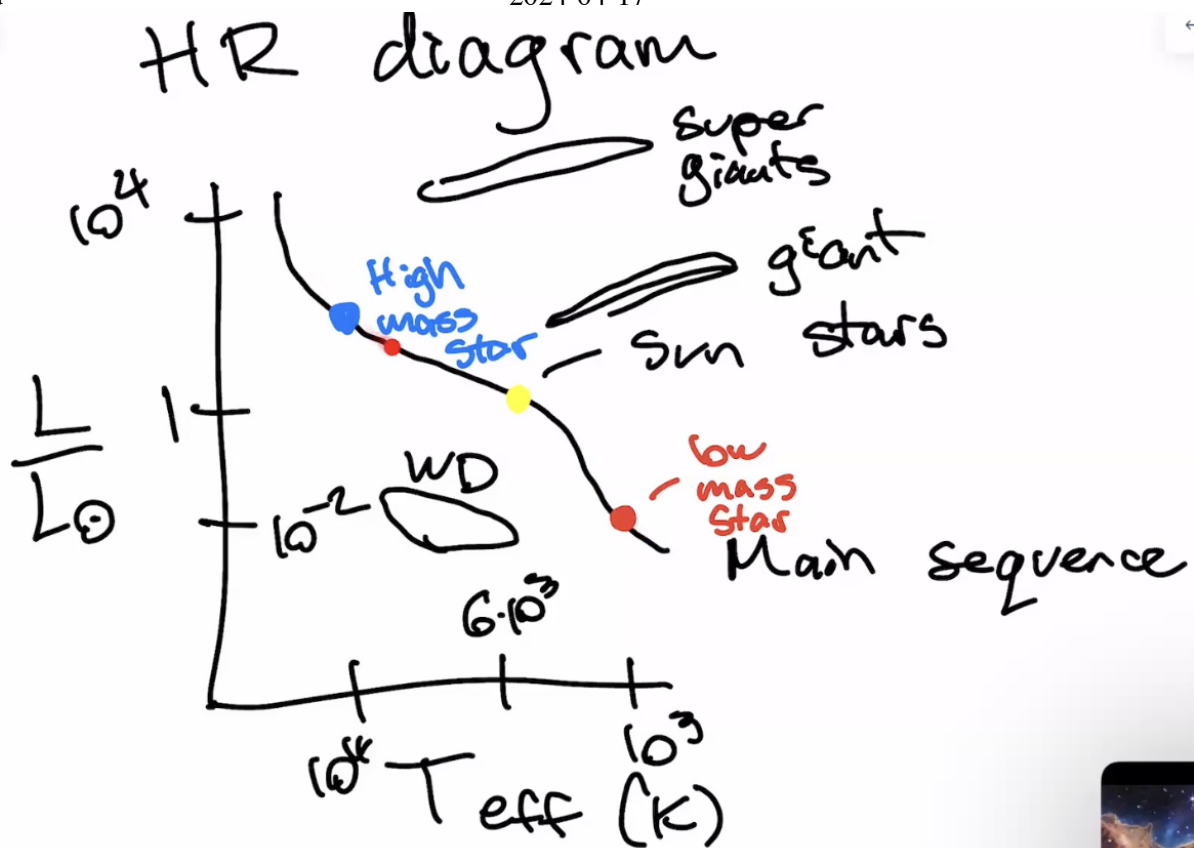 HR diagram
super
giants
10⁴
giant
stars
High
mass
star
Sun
L
L⊙
1
low
mass
star
WD
10⁻²
Main sequence
6·10³
10⁴
10³
T eff (K)